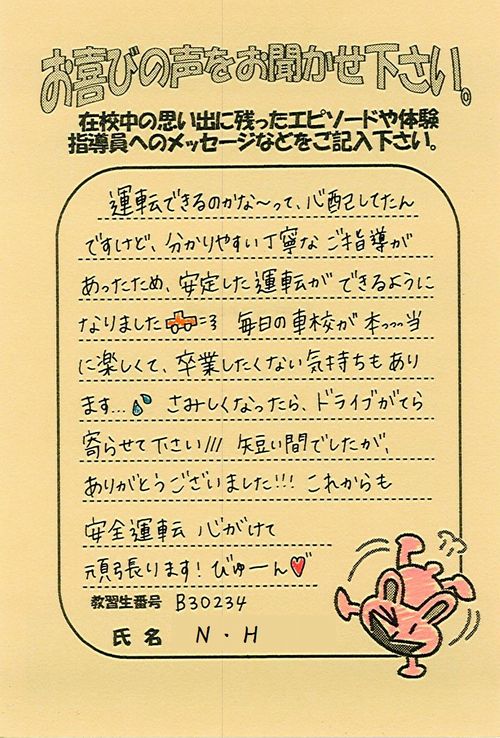 お喜びの声をお聞かせ下さい。
在校中の思い出に残ったエピソードや体験
指導員へのメッセージなどをご記入下さい。
運転できるのかな～って、心配してたん
ですけど、分かりやすい丁寧なご指導が
あったため、安定した運転ができるように
なりました=3 毎日の車校が本っっっ当
に楽しくて、卒業したくない気持ちもあり
ます... さみしくなったら、ドライブがてら
寄らせて下さい/// 短い間でしたが、
ありがとうございました!!! これからも
安全運転 心がけて
頑張ります! びゅーん♥
教習生番号 B30234
氏名 N・H